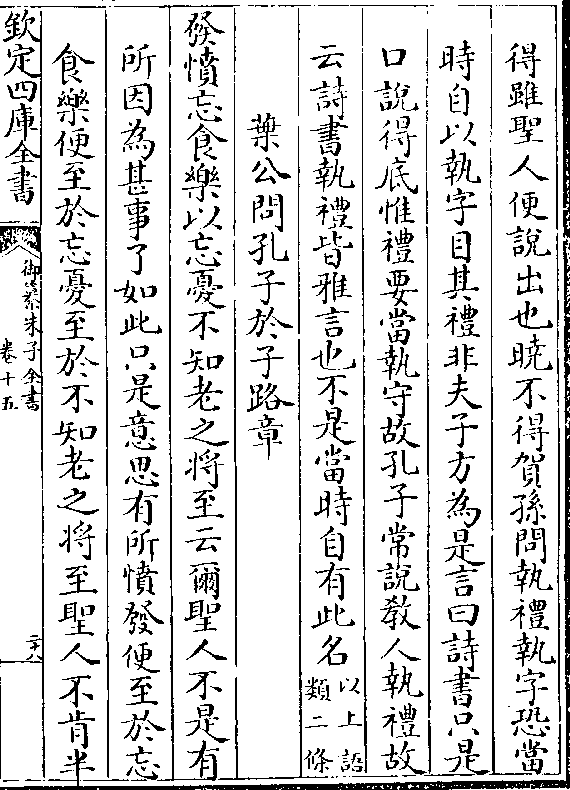 得雖聖人便說出也曉不得賀孫問執禮執字恐當
時自以執字目其禮非夫子方為是言曰詩書只是
口說得底惟禮要當執守故孔子常說教人執禮故
云詩書執禮皆雅言也不是當時自有此名以上語類二條
葉公問孔子於子路章
發憤忘食樂以忘憂不知老之將至云爾聖人不是有
所因為甚事了如此只是意思有所憤發便至於忘
食樂便至於忘憂至於不知老之將至聖人不肯半
欽定四庫全書
御纂朱子全書
卷十五
二十八